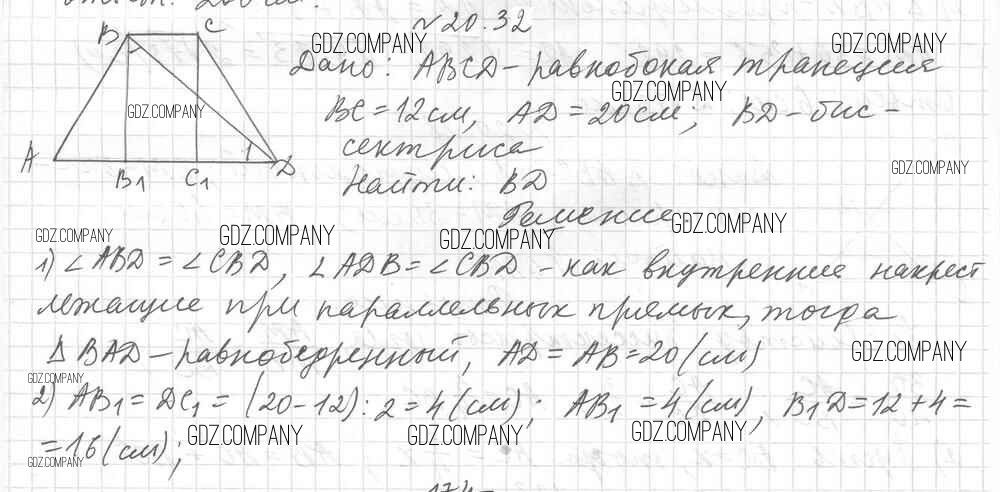 №20.32
B C
GDZ.COMPANY GDZ.COMPANY
Дано: ABCD – равнобокая трапеция
GDZ.COMPANY GDZ.COMPANY
BC = 12 см, AD = 20 см; BD – бис-
сектриса
A B1 C1 D
GDZ.COMPANY
Найти: BD
Решение
GDZ.COMPANY GDZ.COMPANY GDZ.COMPANY GDZ.COMPANY
1) ∠ABD = ∠CBD, ∠ADB = ∠CBD – как внутренние накрест
лежащие при параллельных прямых, тогда
Δ BAD – равнобедренный, AD = AB = 20 (см)
GDZ.COMPANY
GDZ.COMPANY
2) AB1 = DC1 = (20-12) : 2 = 4 (см); AB1 = 4 (см), B1D = 12 + 4 =
= 16 (см);
GDZ.COMPANY GDZ.COMPANY GDZ.COMPANY
GDZ.COMPANY